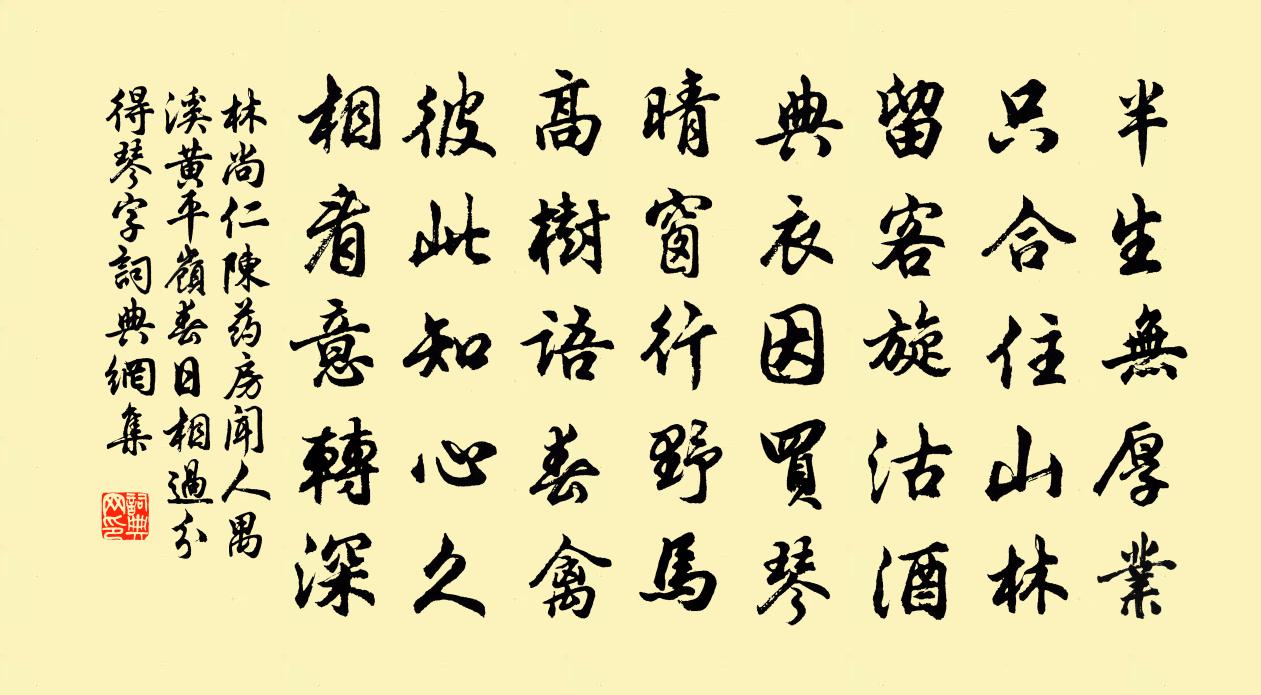 半生無厚業
只合住山林
留客旋沽酒
典衣因買琴
晴窗行野馬
高樹語春禽
彼此知心久
相看意轉深
林尚仁陳药房闻人禺
溪黄平嶺春日相過分
得琴字詞典網集
詞典网印